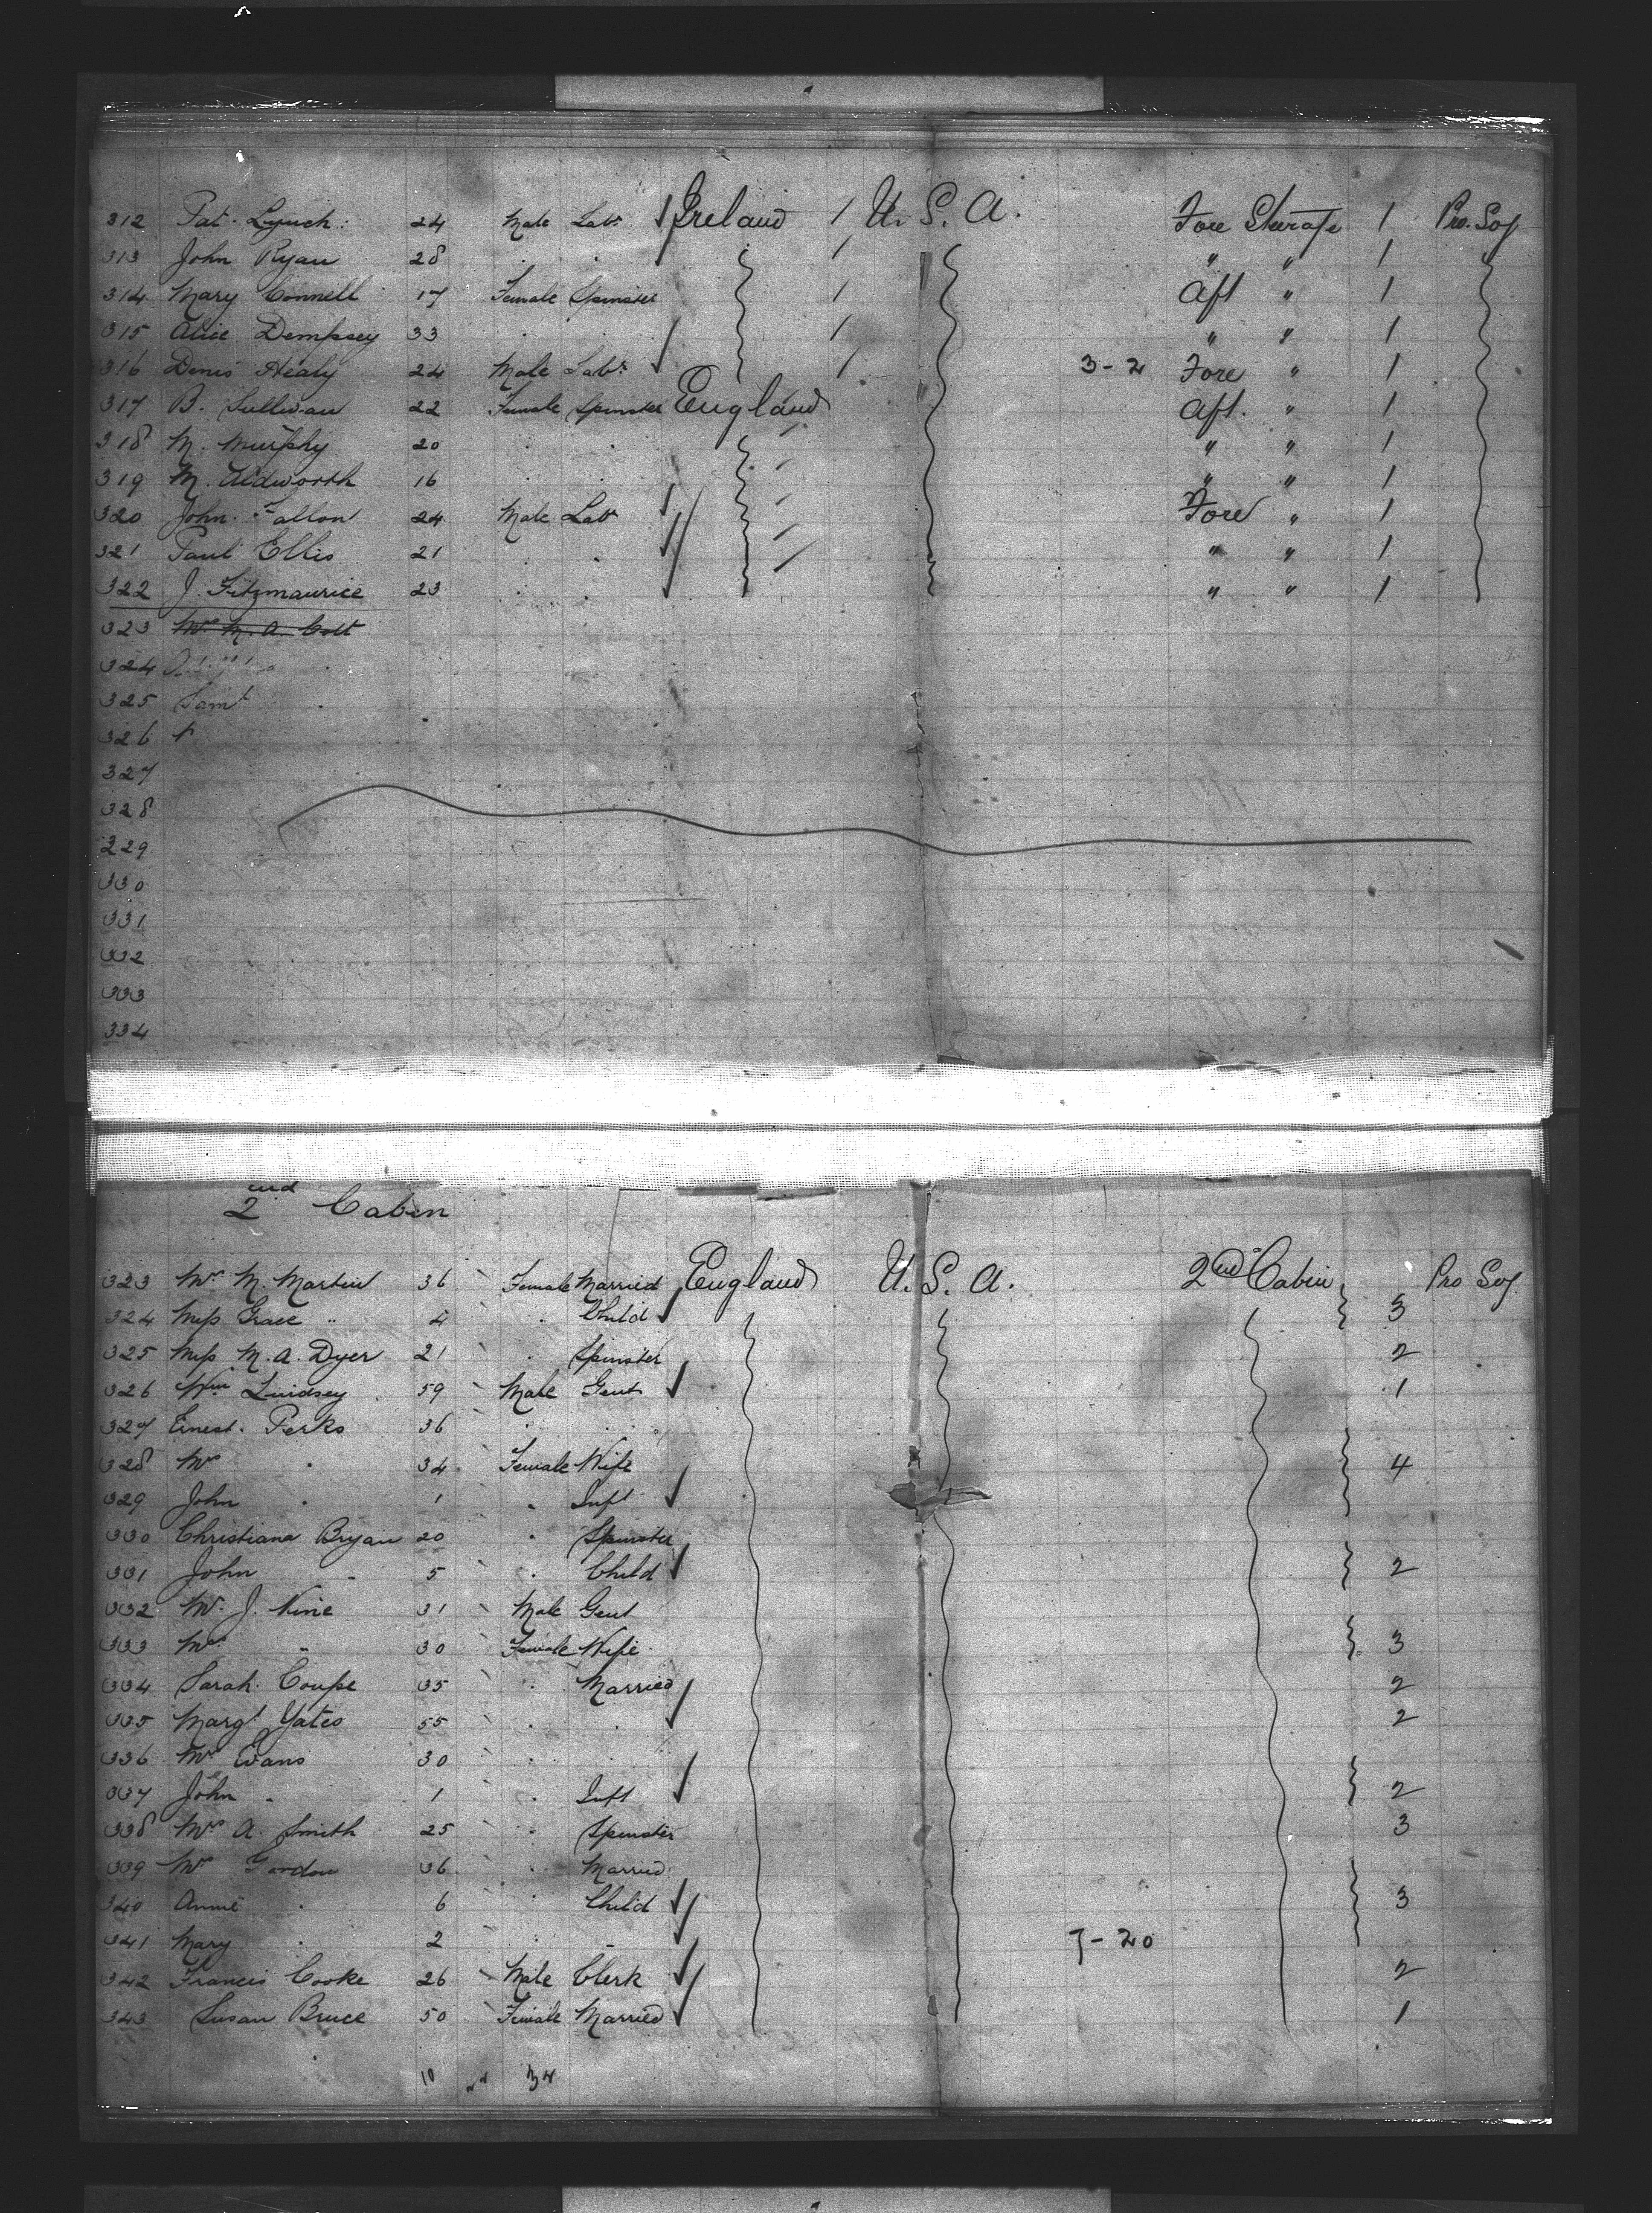 312 Pat. Lynch. 24 Male Labr Ireland 1 U. S. A. Fore Steerage 1 Pro. Soj
313 John Ryan 28 . . 1 " " 1
314 Mary Connell 17 Female Spinster 1 Aft " 1
315 Alice Dempsey 33 . . 1 " " 1
316 Denis Healy 24 Male Labr. 1 3-2 Fore " 1
317 B. Sullivan 22 Female Spinster England Aft. " 1
318 M. Murphy 20 . . " " 1
319 M. Aldworth 16 . . " " 1
320 John Fallon 24 Male Labr Fore " 1
321 Paul Ellis 21 . . " " 1
322 J. Fitzmaurice 23 . . " " 1
323 Mrs M. A. Colt
324
325 Saml
326
327
328
229
330
331
332
333
334
2nd Cabin
323 Mrs M. Martin 36 Female Married England U. S. A. 2nd Cabin Pro Soj
324 Miss Grace " 4 . Child 3
325 Miss M. A. Dyer 21 . Spinster 2
326 Wm Lindsey 59 Male Gent 1
327 Ernest. Perks 36 . .
328 Mrs . 34 Female Wife 4
329 John . 1 . Inft
330 Christiana Bryan 20 . Spinster
331 John 5 . Child 2
332 Mr. J. Nine 31 Male Gent
333 Mrs " 30 Female Wife 3
334 Sarah Coupe 35 . Married 2
335 Margt Yates 55 . . 2
336 Mrs Evans 30 . .
337 John . 1 . Inft 2
338 Mrs A. Smith 25 . Spinster 3
339 Mrs Gordon 36 . Married
340 Annie . 6 . Child 3
341 Mary . 2 . . 7-20
342 Francis Cooke 26 Male Clerk 2
343 Susan Bruce 50 Female Married 1
10